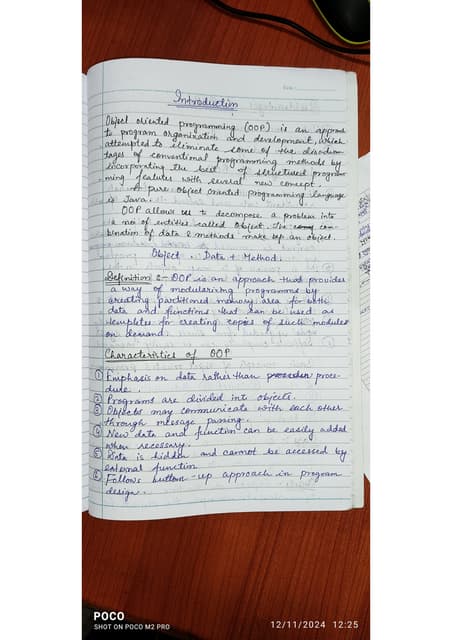 Introduction
Object oriented programming (OOP) is an approach
to program organization and development, which
attempted to eliminate some of the disadvan-
tages of conventional programming methods by
incorporating the best of structured program
ming features with several new concept.
A pure object oriented programming language
is Java.
OOP allows us to decompose a problem into
a no. of entities called object. The com-
bination of data & methods make up an object.
Object = Data + Method.
Definition :- OOP is an approach that provides
a way of modularizing programms by
creating partitioned memory area for both
data and functions that can be used as
templates for creating copies of such modules
on demand.
Characteristics of OOP
① Emphasis on data rather than proce-
dure.
② Programs are divided into objects.
③ Objects may communicate with each other
through message passing.
④ New data and function can be easily added
when necessary.
⑤ Data is hidden and cannot be accessed by
external function.
⑥ Follows buttom-up approach in program
design.
POCO
SHOT ON POCO M2 PRO
12/11/2024 12:25